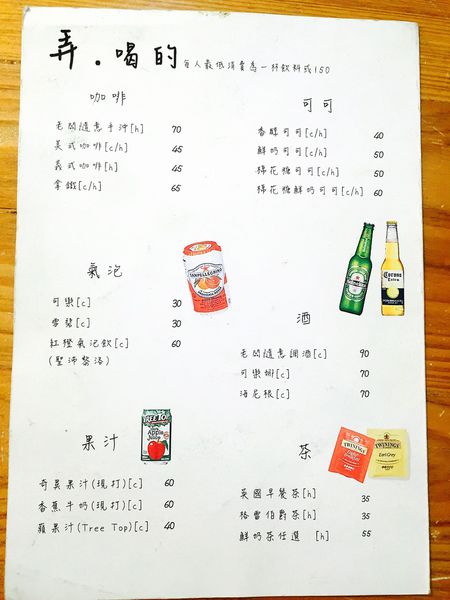 弄.喝的 每人最低消費為一杯飲料或150
咖啡
老闆隨意手沖[h] 70
美式咖啡[c/h] 45
義式咖啡[h] 45
拿鐵[c/h] 65
可可
香醇可可[c/h] 40
鮮奶可可[c/h] 50
棉花糖可可[c/h] 50
棉花糖鮮奶可可[c/h] 60
氣泡
可樂[c] 30
雪碧[c] 30
紅橙氣泡飲[c] 60
(聖沛黎洛)
SANPELLEGRINO
Heineken
Corona
Extra
酒
老闆隨意調酒[c] 90
可樂娜[c] 70
海尼根[c] 70
果汁
TREE TOP
Apple
奇異果汁(現打)[c] 60
香蕉牛奶(現打)[c] 60
蘋果汁(Tree Top)[c] 40
茶
TWININGS
TWININGS
Earl Grey
英國早餐茶[h] 35
格雷伯爵茶[h] 35
鮮奶茶任選 [h] 55